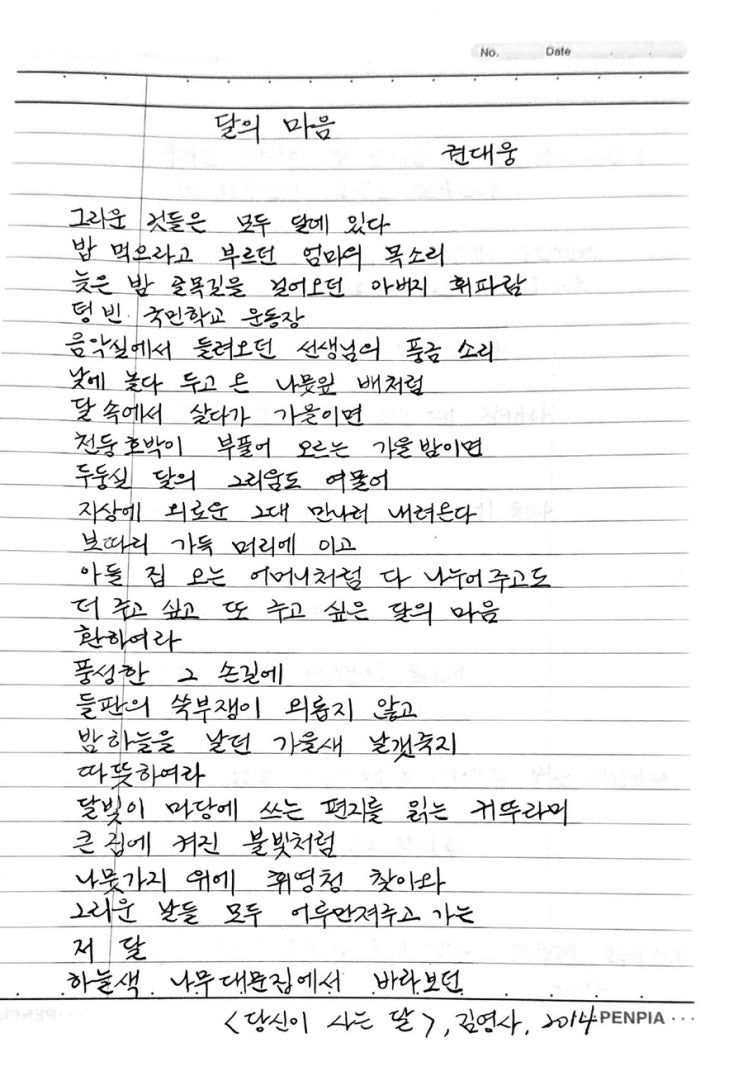 No. Date
달의 마음
권대웅
그리운 것들은 모두 달데 있다
밥 먹으라고 부르던 엄마의 목소리
늦은 밤 골목길을 걸어오던 아버지 휘파람
텅 빈 국민학교 운동장
음악실에서 들려오던 선생님의 풍금 소리
낮에 놀다 두고 온 나뭇잎 배처럼
달 속에서 살다가 가을이면
천둥호박이 부풀어 오르는 가을밤이면
두둥실 달의 그리움도 여물어
지상에 외로운 그대 만나러 내려온다
보따리 가득 머리에 이고
아들 집 오는 어머니처럼 다 나누어주고도
더 주고 싶고 또 주고 싶은 달의 마음
환하여라
풍성한 그 손길에
들판의 쑥부쟁이 외롭지 않고
밤하늘을 날던 가을새 날갯죽지
따뜻하여라
달빛이 마당에 쓰는 편지를 읽는 귀뚜라미
큰 집에 켜진 불빛처럼
나뭇가지 위에 휘영청 찾아와
그리운 날들 모두 어루만져주고 가는
저 달
하늘색 나무대문집에서 바라보던
<당신이 사는 달>, 김영사, 2014
PENPIA